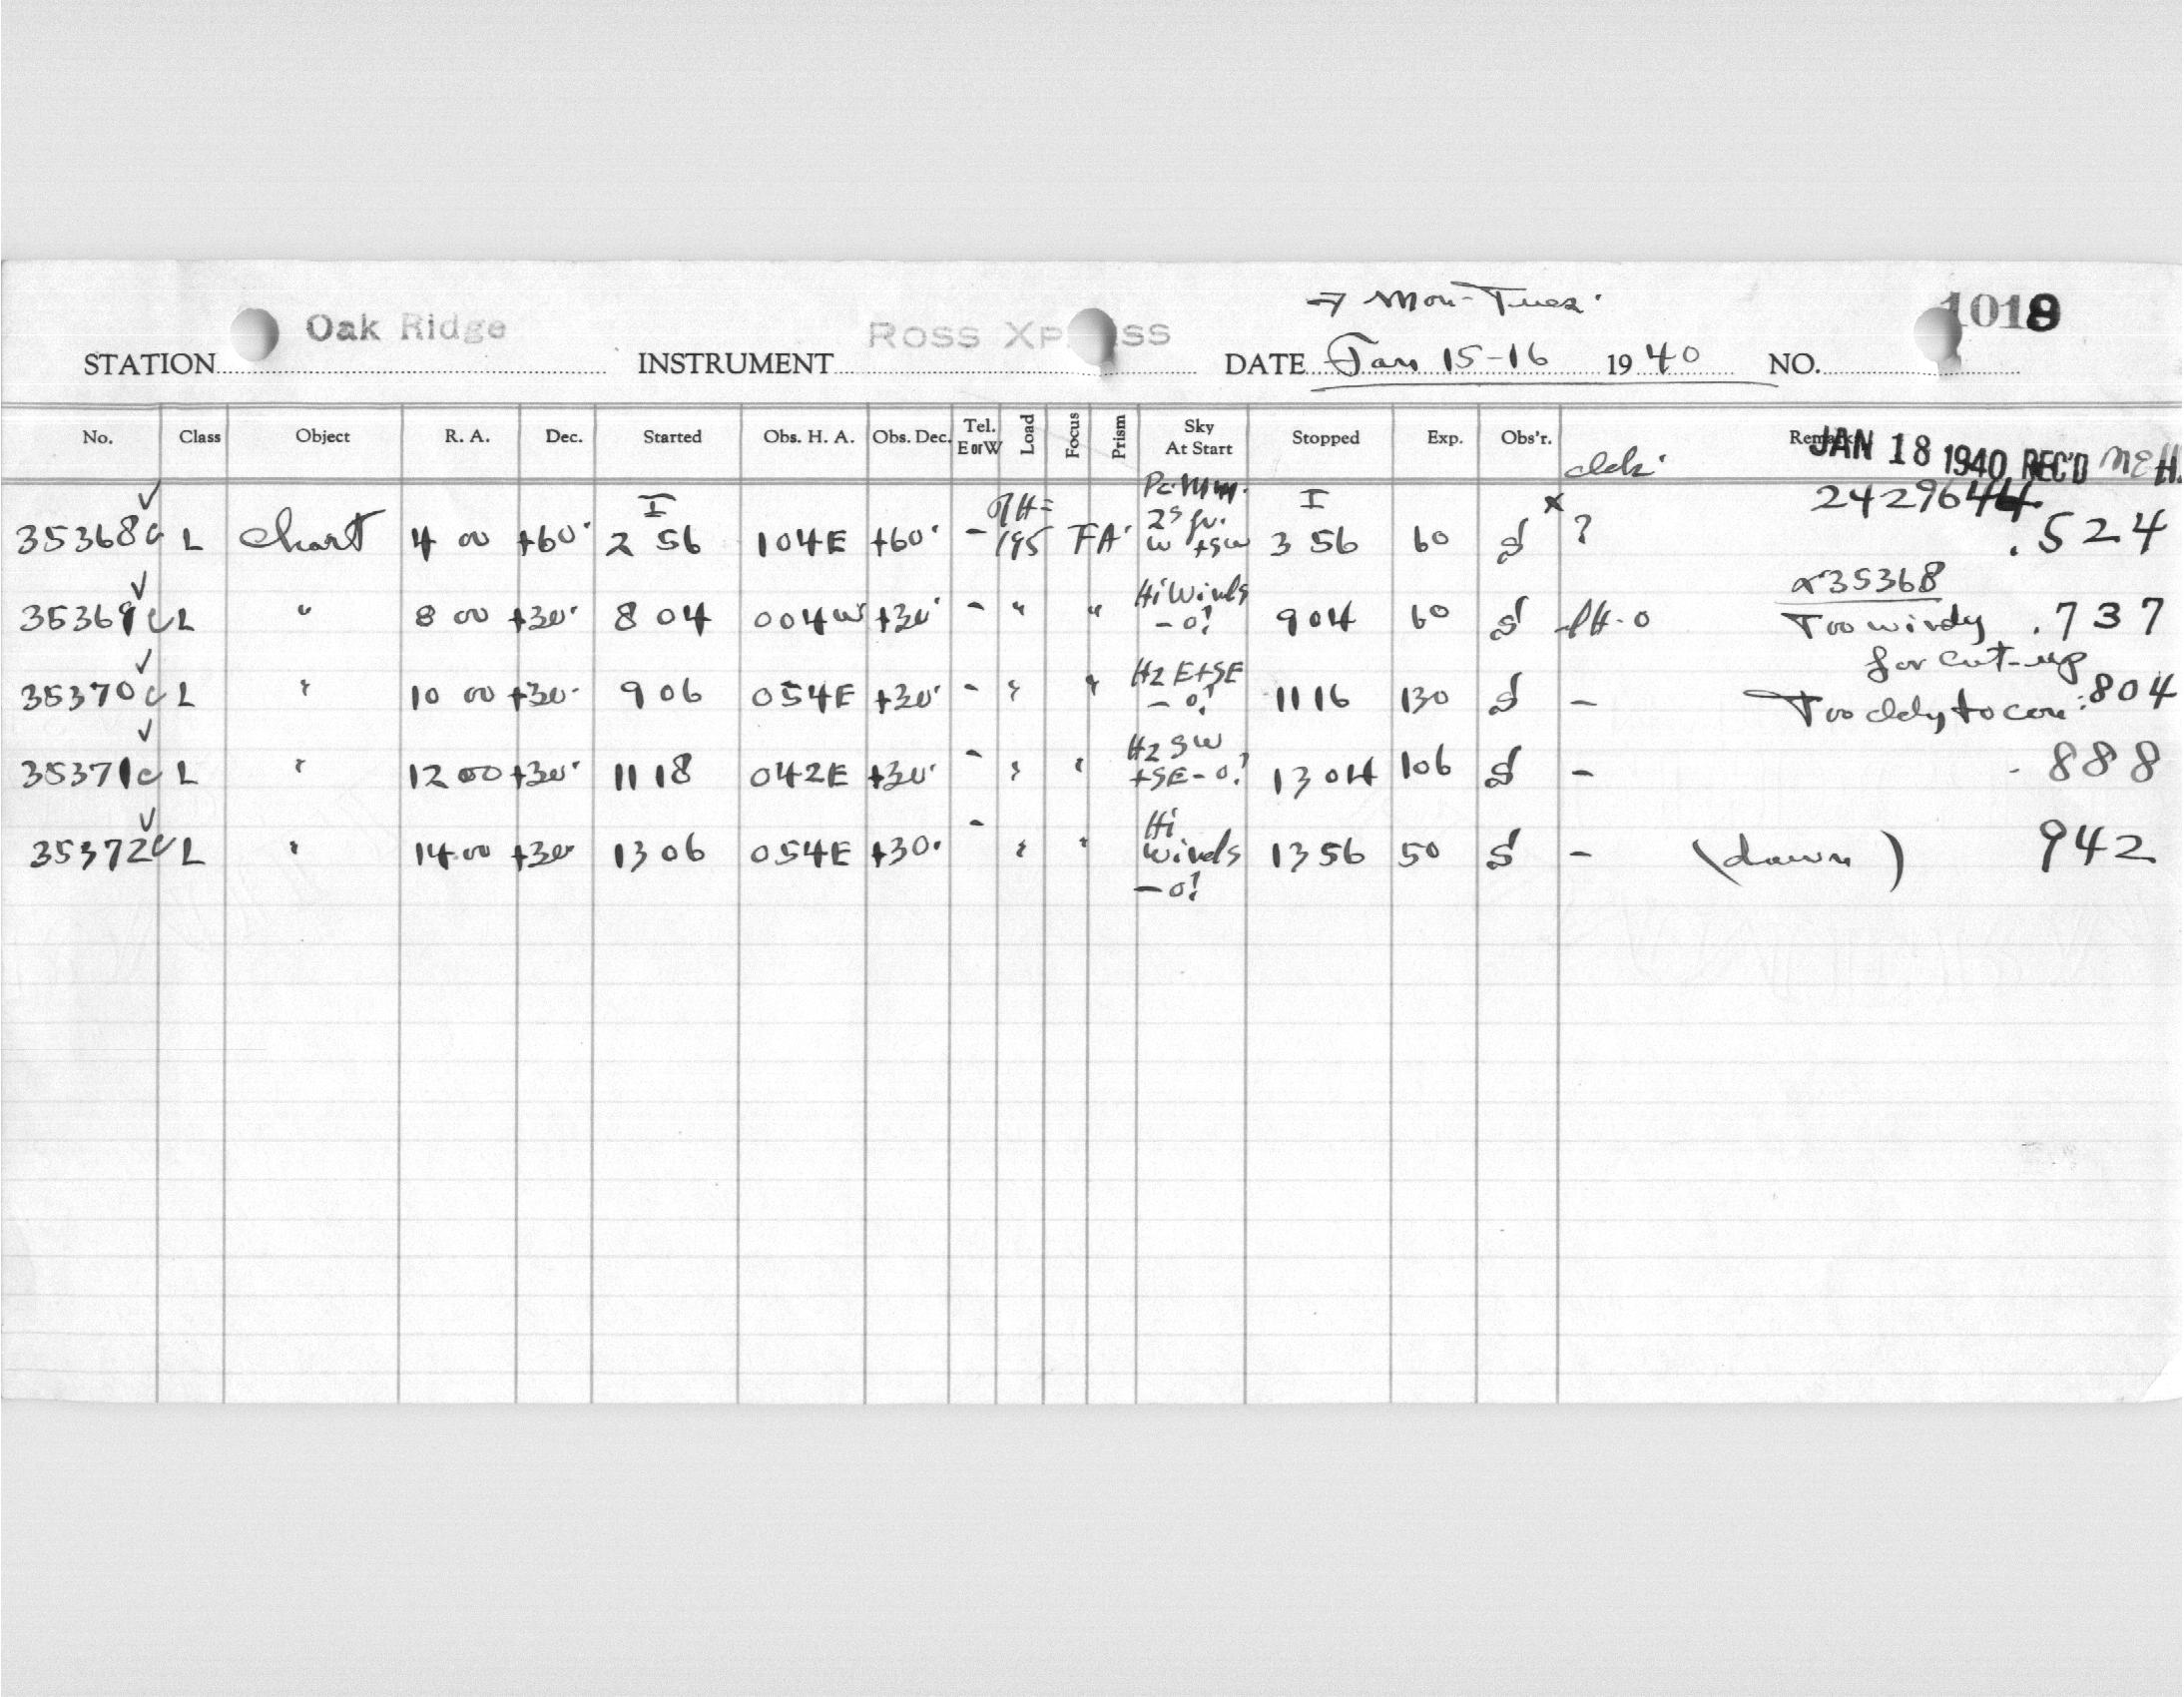 → Mon-Tues.
1018
Oak Ridge Ross Xpress
STATION INSTRUMENT DATE Jan 15-16 1940 NO.
No. Class Object R. A. Dec. Started Obs. H. A. Obs. Dec. Tel. E or W Load Focus Prism Sky At Start Stopped Exp. Obs'r. Remarks
JAN 18 1940 REC'D M E H.
2429644
35368c L Chart 4 00 +60° 2 56 104E +60° - 195 FA. W +SW 3 56 60 S ? .524
α35368
35369c L " 8 00 +30° 8 04 004W +30° - " " Hi Winds -0? 904 60 S Too windy .737
for cut-up
35370c L " 10 00 +30° 9 06 054E +30° - " " Hz E+SE -0? 11 16 130 S - Too cldy to con .804
35371c L " 12 00 +30° 11 18 042E +30° - " " Hz SW +SE-0? 13 04 106 S - .888
35372c L " 14 00 +30° 13 06 054E +30° - " " Hi Winds -0? 13 56 50 S - (dawn) 942